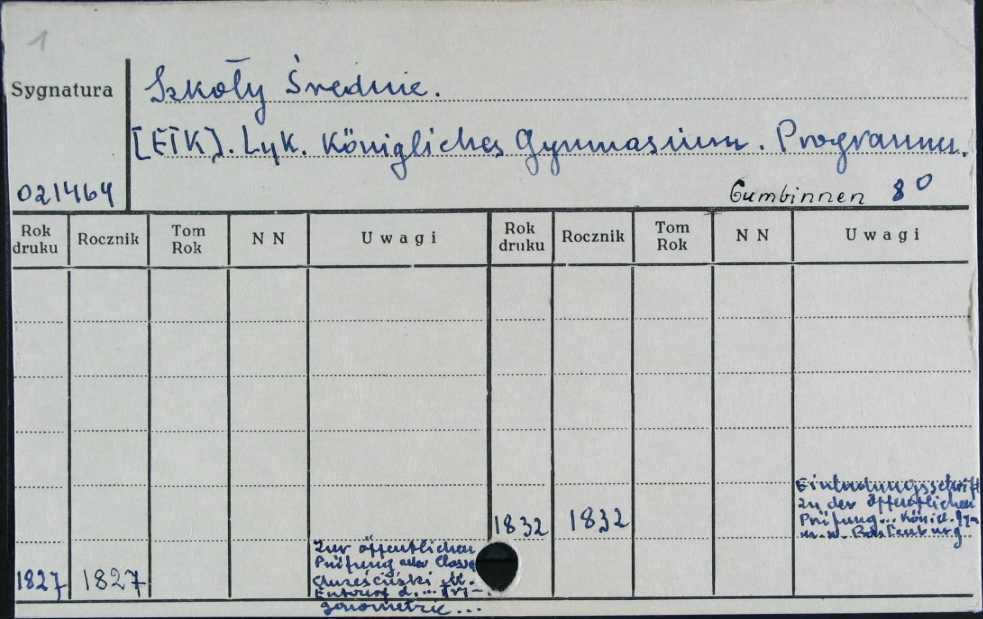 1
Szkoły Średnie.
Sygnatura
[EŁK]. Lyk. Königliches Gymnasium. Programm.
021464
Gumbinnen 8⁰
Rok druku Rocznik Tom Rok N N Uwagi Rok druku Rocznik Tom Rok N N Uwagi
Einladungsschrift
zu der öffentlichen
1832 1832 Prüfung... Königl. Gym
Rastenburg
Zur öffentlichen
Prüfung aller Classen
1827 1827
Entwurf d. ... Tri-
gonometrie...